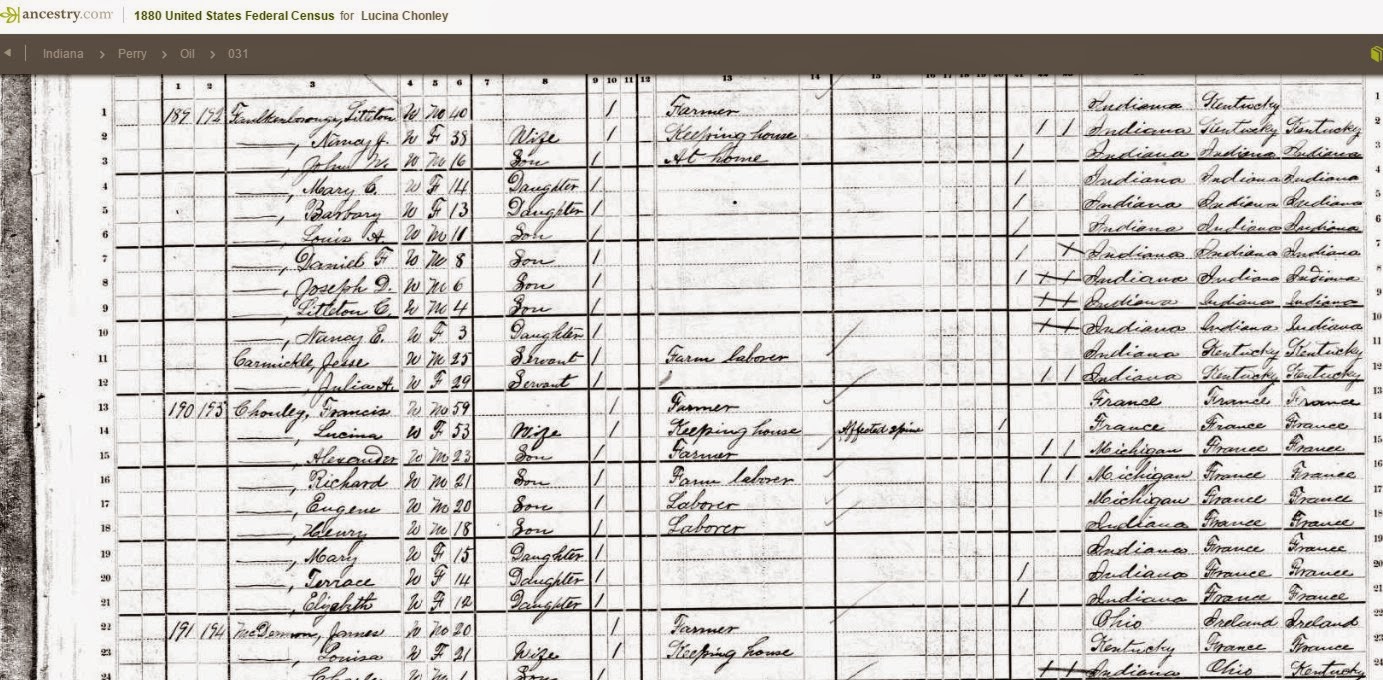 ancestry.com 1880 United States Federal Census for Lucina Chonley
Indiana > Perry > Oil > 031
1 2 3 4 5 6 7 8 9 10 11 12 13 14 15 16 17 18 19 20 21
1 189 192 Faulkenborough, Littleton W M 40 1 Farmer Indiana Kentucky 1
2 ——, Nancy J. W F 38 Wife 1 Keeping house 1 1 Indiana Kentucky Kentucky 2
3 ——, John W. W M 16 Son 1 At home 1 Indiana Indiana Indiana 3
4 ——, Mary C. W F 14 Daughter 1 1 Indiana Indiana Indiana 4
5 ——, Barbary W F 13 Daughter 1 1 Indiana Indiana Indiana 5
6 ——, Louis A. W M 11 Son 1 1 Indiana Indiana Indiana 6
7 ——, Daniel F W M 8 Son 1 1 Indiana Indiana Indiana 7
8 ——, Joseph D. W M 6 Son 1 1 1 1 Indiana Indiana Indiana 8
9 ——, Littleton C. W M 4 Son 1 1 1 Indiana Indiana Indiana 9
10 ——, Nancy E. W F 3 Daughter 1 1 1 Indiana Indiana Indiana 10
11 Carmickle, Jesse W M 25 Servant 1 Farm laborer Indiana Kentucky Kentucky 11
12 ——, Julia A. W F 29 Servant 1 1 1 Indiana Kentucky Kentucky 12
13 190 193 Chonley, Francis W M 59 1 Farmer France France France 13
14 ——, Lucina W F 53 Wife 1 Keeping house Affected spine 1 France France France 14
15 ——, Alexander W M 23 Son 1 Farmer 1 1 Michigan France France 15
16 ——, Richard W M 21 Son 1 Farm laborer 1 1 Michigan France France 16
17 ——, Eugene W M 20 Son 1 Laborer Michigan France France 17
18 ——, Henry W M 18 Son 1 Laborer Indiana France France 18
19 ——, Mary W F 15 Daughter 1 Indiana France France 19
20 ——, Terrace W F 14 Daughter 1 1 Indiana France France 20
21 ——, Elizabith W F 12 Daughter 1 1 Indiana France France 21
22 191 194 McDermon, James W M 20 1 Farmer Ohio Ireland Ireland 22
23 ——, Louisa W F 21 Wife 1 Keeping house Kentucky France France 23
24 1 1 Indiana Ohio Kentucky 24